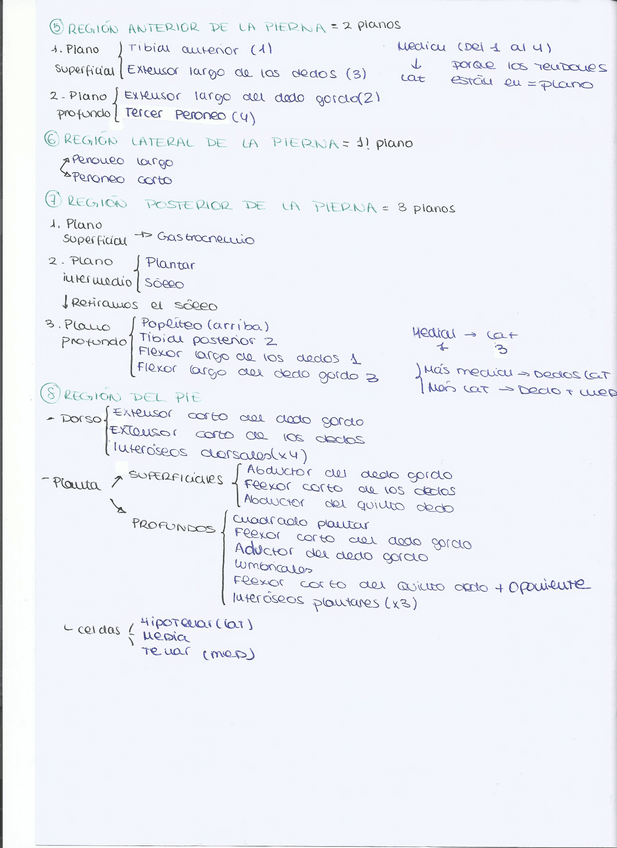 ⑤ REGIÓN ANTERIOR DE LA PIERNA = 2 planos
1. Plano superficial { Tibial anterior (1)
Extensor largo de los dedos (3)
Medial (Del 1 al 4)
↓ porque los tendones
Lat están en = plano
2. Plano profundo { Extensor largo del dedo gordo (2)
Tercer Peroneo (4)
⑥ REGIÓN LATERAL DE LA PIERNA = 1! plano
Peroneo largo
Peroneo corto
⑦ REGIÓN POSTERIOR DE LA PIERNA = 3 planos
1. Plano superficial → Gastrocnemio
2. Plano intermedio { Plantar
Sóleo
↓ Retiramos el sóleo
3. Plano profundo { Poplíteo (arriba)
Tibial posterior 2
Flexor largo de los dedos 1
Flexor largo del dedo gordo 3
Medial → Lat
1 3
Más medial → Dedos Lat
Más Lat → Dedo + MED
⑧ REGIÓN DEL PIE
- Dorso { Extensor corto del dedo gordo
Extensor corto de los dedos
Interóseos dorsales (x4)
- Planta ↗ SUPERFICIALES { Abductor del dedo gordo
Flexor corto de los dedos
Abductor del quinto dedo
↘ PROFUNDOS { Cuadrado plantar
Flexor corto del dedo gordo
Aductor del dedo gordo
Lumbricales
Flexor corto del quinto dedo + Oponiente
Interóseos plantares (x3)
- Celdas { Hipotenar (Lat)
Media
Tenar (MED)